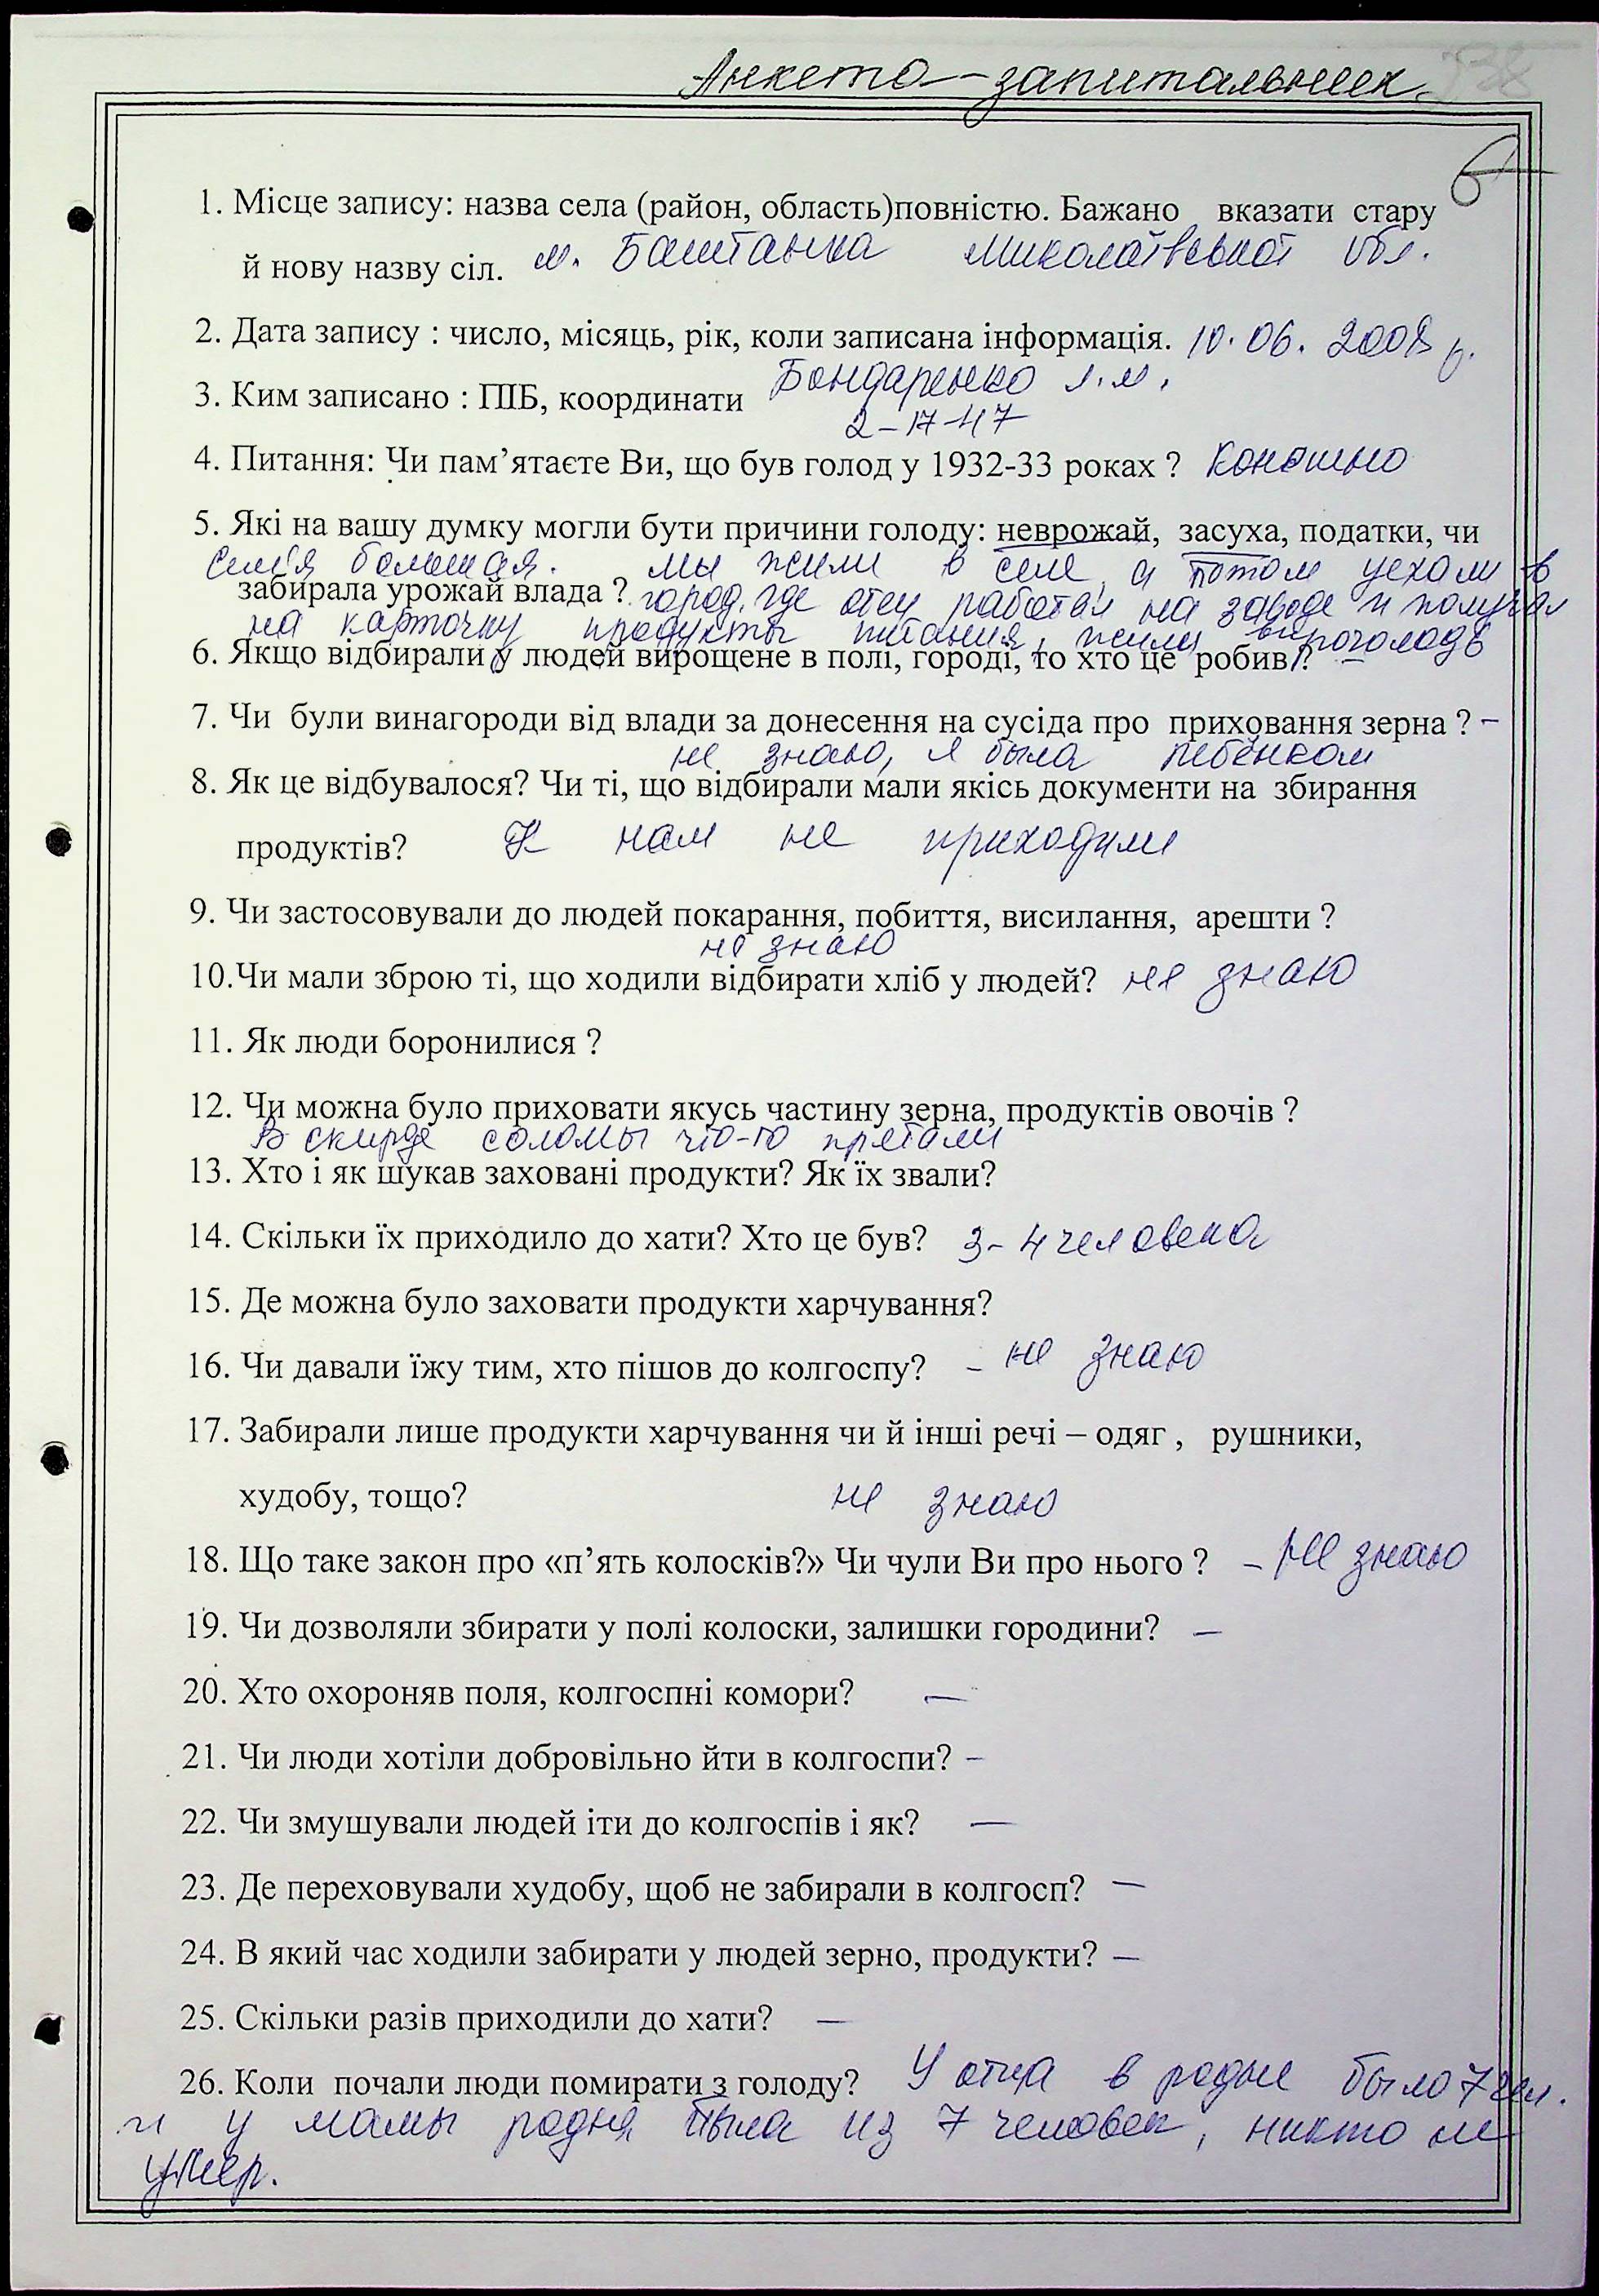 Анкета-запитальник.
6
1. Місце запису: назва села (район, область)повністю. Бажано вказати стару
й нову назву сіл. м. Баштанка Миколаївської обл.
2. Дата запису : число, місяць, рік, коли записана інформація. 10.06.2008 р.
3. Ким записано : ПІБ, координати Бондаренко Л.М.
2-17-47
4. Питання: Чи пам’ятаєте Ви, що був голод у 1932-33 роках ? конешно
5. Які на вашу думку могли бути причини голоду: неврожай, засуха, податки, чи
Семья большая. Мы жили в селе, а потом уехали в
забирала урожай влада ? город, где отец работал на заводе и получал
на карточку продукты питания, жили впроголодь
6. Якщо відбирали у людей вирощене в полі, городі, то хто це робив? –
7. Чи були винагороди від влади за донесення на сусіда про приховання зерна ? –
не знаю, я была ребёнком
8. Як це відбувалося? Чи ті, що відбирали мали якісь документи на збирання
продуктів? К нам не приходили
9. Чи застосовували до людей покарання, побиття, висилання, арешти ?
не знаю
10.Чи мали зброю ті, що ходили відбирати хліб у людей? не знаю
11. Як люди боронилися ?
12. Чи можна було приховати якусь частину зерна, продуктів овочів ?
В скирде соломы что-то прятали
13. Хто і як шукав заховані продукти? Як їх звали?
14. Скільки їх приходило до хати? Хто це був? 3-4 человека
15. Де можна було заховати продукти харчування?
16. Чи давали їжу тим, хто пішов до колгоспу? – не знаю
17. Забирали лише продукти харчування чи й інші речі – одяг , рушники,
худобу, тощо? не знаю
18. Що таке закон про «п’ять колосків?» Чи чули Ви про нього ? – не знаю
19. Чи дозволяли збирати у полі колоски, залишки городини? –
20. Хто охороняв поля, колгоспні комори? –
21. Чи люди хотіли добровільно йти в колгоспи? –
22. Чи змушували людей іти до колгоспів і як? –
23. Де переховували худобу, щоб не забирали в колгосп? –
24. В який час ходили забирати у людей зерно, продукти? –
25. Скільки разів приходили до хати? –
26. Коли почали люди помирати з голоду? У отца в родне было 7 чел.
и у мамы родня была из 7 человек, никто не
умер.